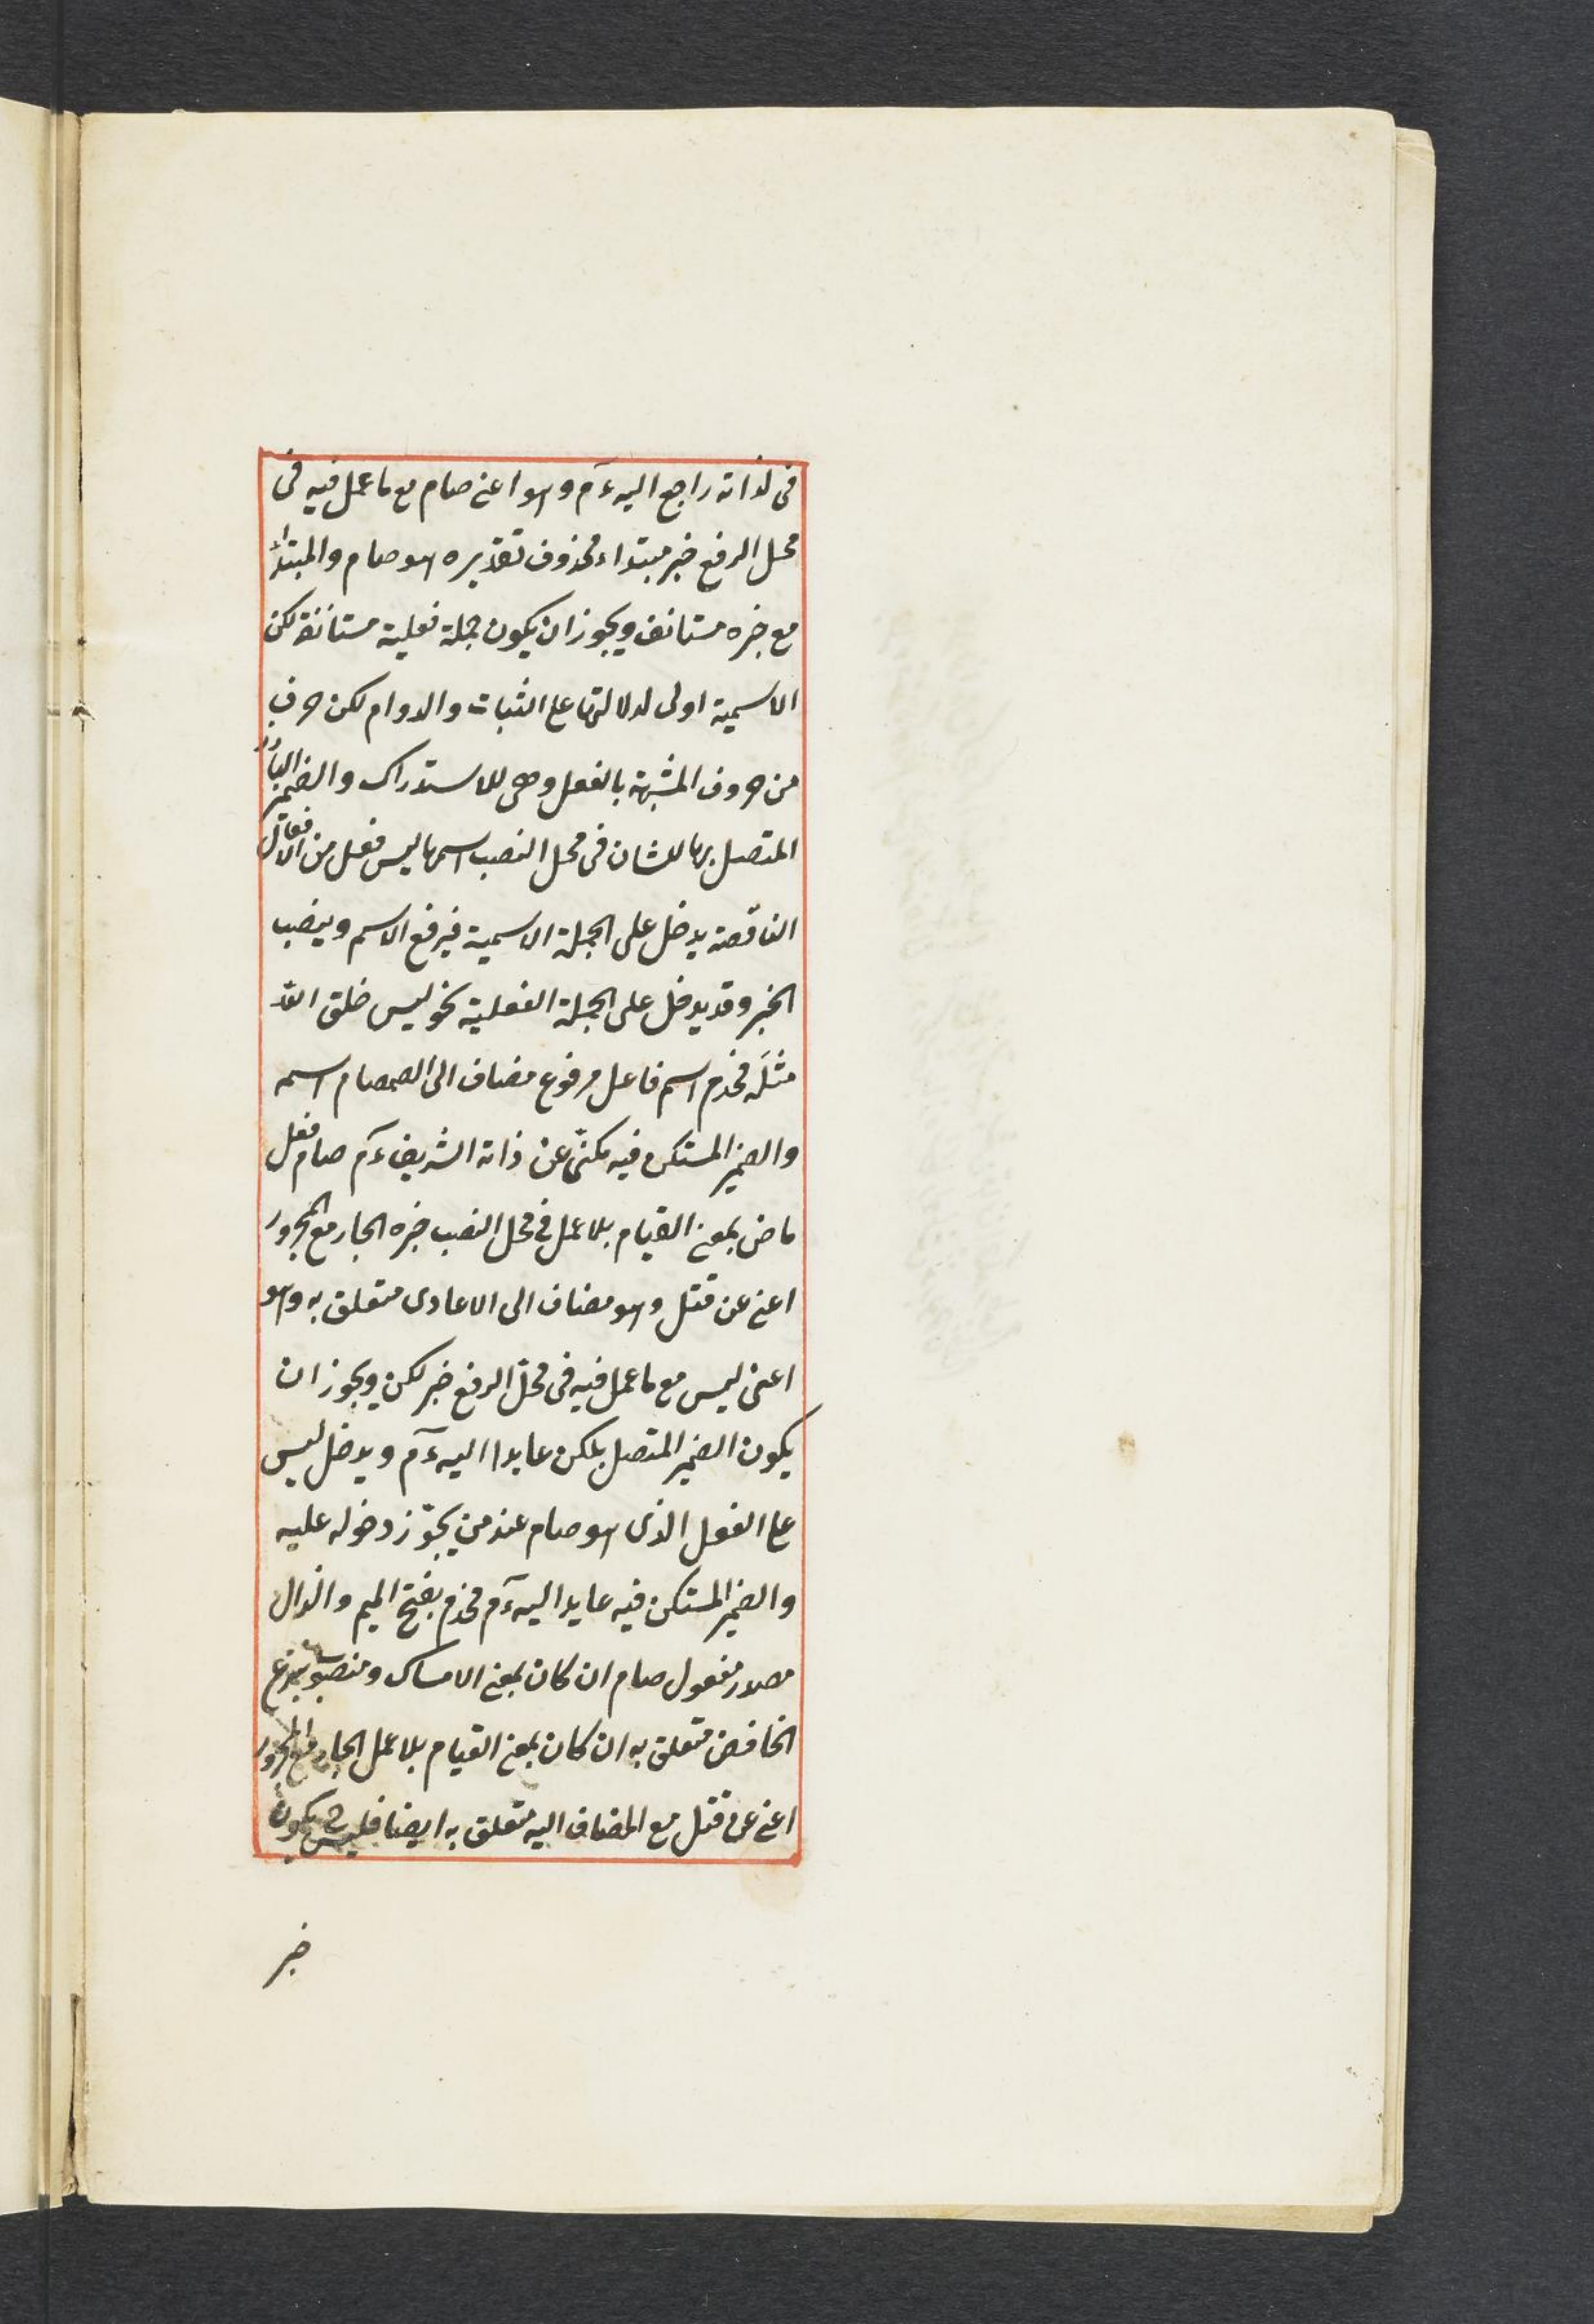 فى لذاته راجع اليه ءم وهو اعنى صام مع ما عمل فيه فى
محل الرفع خبر مبتداء محذوف تقديره هو صام والمبتدأ
مع خبره مستانف ويجوز ان يكون جملة فعلية مستانفة لكن
الاسمية اولى لدلالتها على الثبات والدوام لكن حرف
من حروف المشبهة بالفعل وهى للاستدراك والضمير البارز
المتصل بها للشان فى محل النصب اسمها ليس فعل من الافعال
الناقصة يدخل على الجملة الاسمية فيرفع الاسم وينصب
الخبر وقد يدخل على الجملة الفعلية نحو ليس خلق الله
مثله مخذم اسم فاعل مرفوع مضاف الى الصمصام اسمه
والضمير المستكن فيه مكنّى عن ذاته الشريف ءم صام فعل
ماض بمعنى القيام بلا عمل فى محل النصب خبره الجار مع المجرور
اعنى عن قتل وهو مضاف الى الاعادى متعلق به وهو
اعنى ليس مع ما عمل فيه فى محلّ الرفع خبر لكن ويجوز ان
يكون الضمير المتصل بلكن عايدا اليه ءم ويدخل ليس
على الفعل الذى هو صام عند من يجوّز دخوله عليه
والضمير المستكن فيه عايد اليه ءم مخذم بفتح الميم والذال
مصدر مفعول صام ان كان بمعنى الامساك ومنصوب بنزع
الخافض متعلق به ان كان بمعنى القيام بلا عمل الجار مع المجرور
اعنى عن قتل مع المضاف اليه متعلق به ايضا فليس ح يكون
خبر